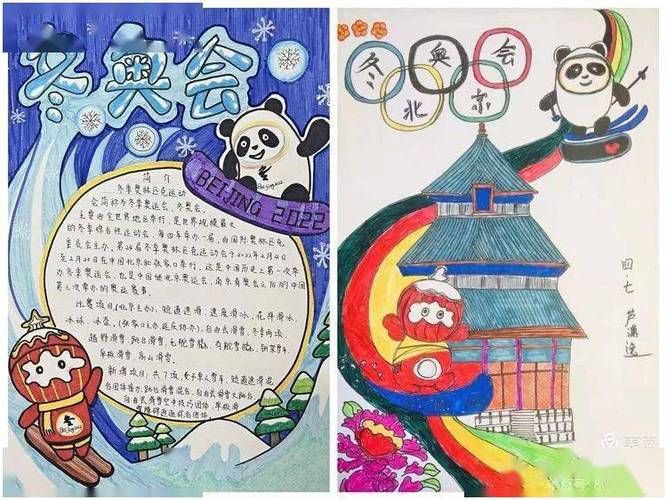 冬奥会
BEIJING 2022
简介
冬季奥林匹克运动
会简称为冬季奥运会、冬奥会。
主要由全世界地区举行，是世界规模最大
的冬季综合性运动会，每四年举办一届，由国际奥林匹克
委员会主办，第24届冬季奥林匹克运动会于2022年2月4日
至2月20日在中国北京和张家口举行，这是中国历史上第一次举
办冬季奥运会，也是中国继北京奥运会、南京青奥会之后的中国
第三次举办的奥运赛事。
比赛项目：(北京主办)，短道速滑、速度滑冰、花样滑冰
冰球、冰壶，(张家口主办延庆协办)，自由式滑雪、冬季两项、
越野滑雪、跳台滑雪、无舵雪橇、有舵雪橇、钢架雪车、
单板滑雪、高山滑雪。
新增项目：共7项，女子单人雪车、短道速滑混
合团体接力、跳台滑雪混合、自由式滑雪大跳台、
自由式滑雪空中技巧团体、单板滑
雪障碍追逐混合团体
冬奥会
北京
四.七
芦
美篇